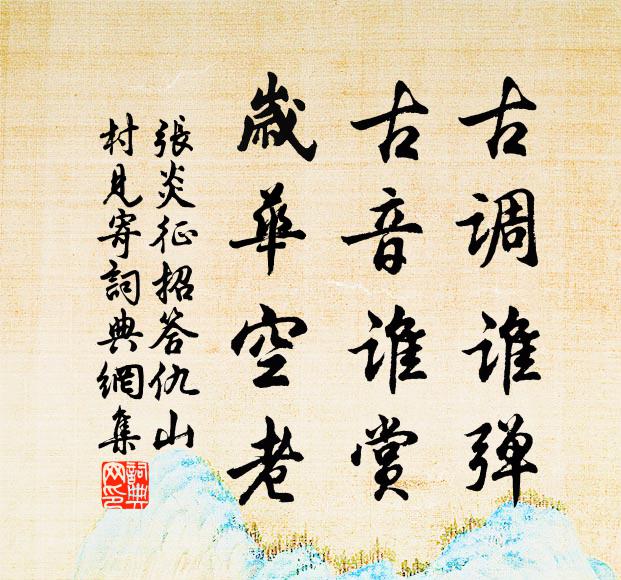 古调谁弹
古音谁赏
岁华空老
张炎征招答仇山
村见寄词典网集
词典网印